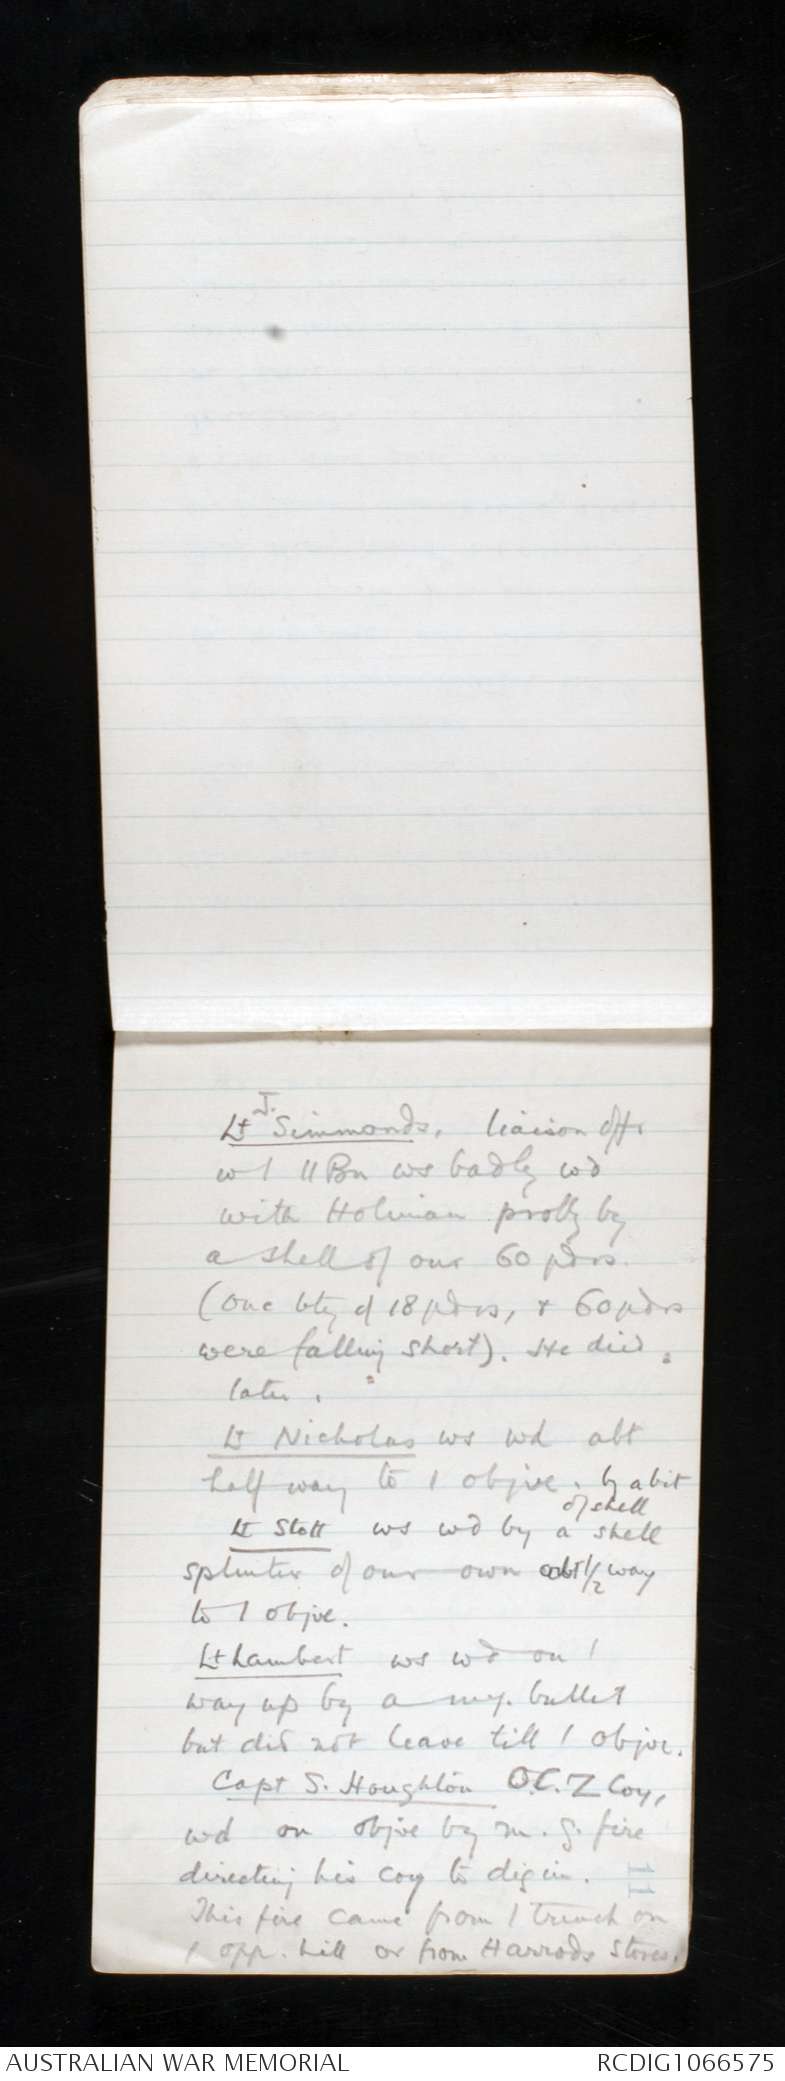 Lt J. Simmonds, liaison offr
w l 11 Bn ws badly wd
with Holman probly by
a shell of our 60 pdrs.
(One bty of 18 pdrs, & 60 pdrs
were falling short). He died
later.
Lt Nicholas ws wd abt
half way to l objve. by a bit
of shell
Lt Stott ws wd by a shell
splinter of our own abt 1/2 way
to l objve.
Lt Lambert ws wd on l
way up by a m.g. bullet
but did not leave till l objve.
Capt S. Houghton O.C. Z Coy,
wd on objve by m.g. fire
directing his coy to dig in.
This fire came from l trench on
l opp. hill or from Harrods Stores.
11
AUSTRALIAN WAR MEMORIAL
RCDIG1066575